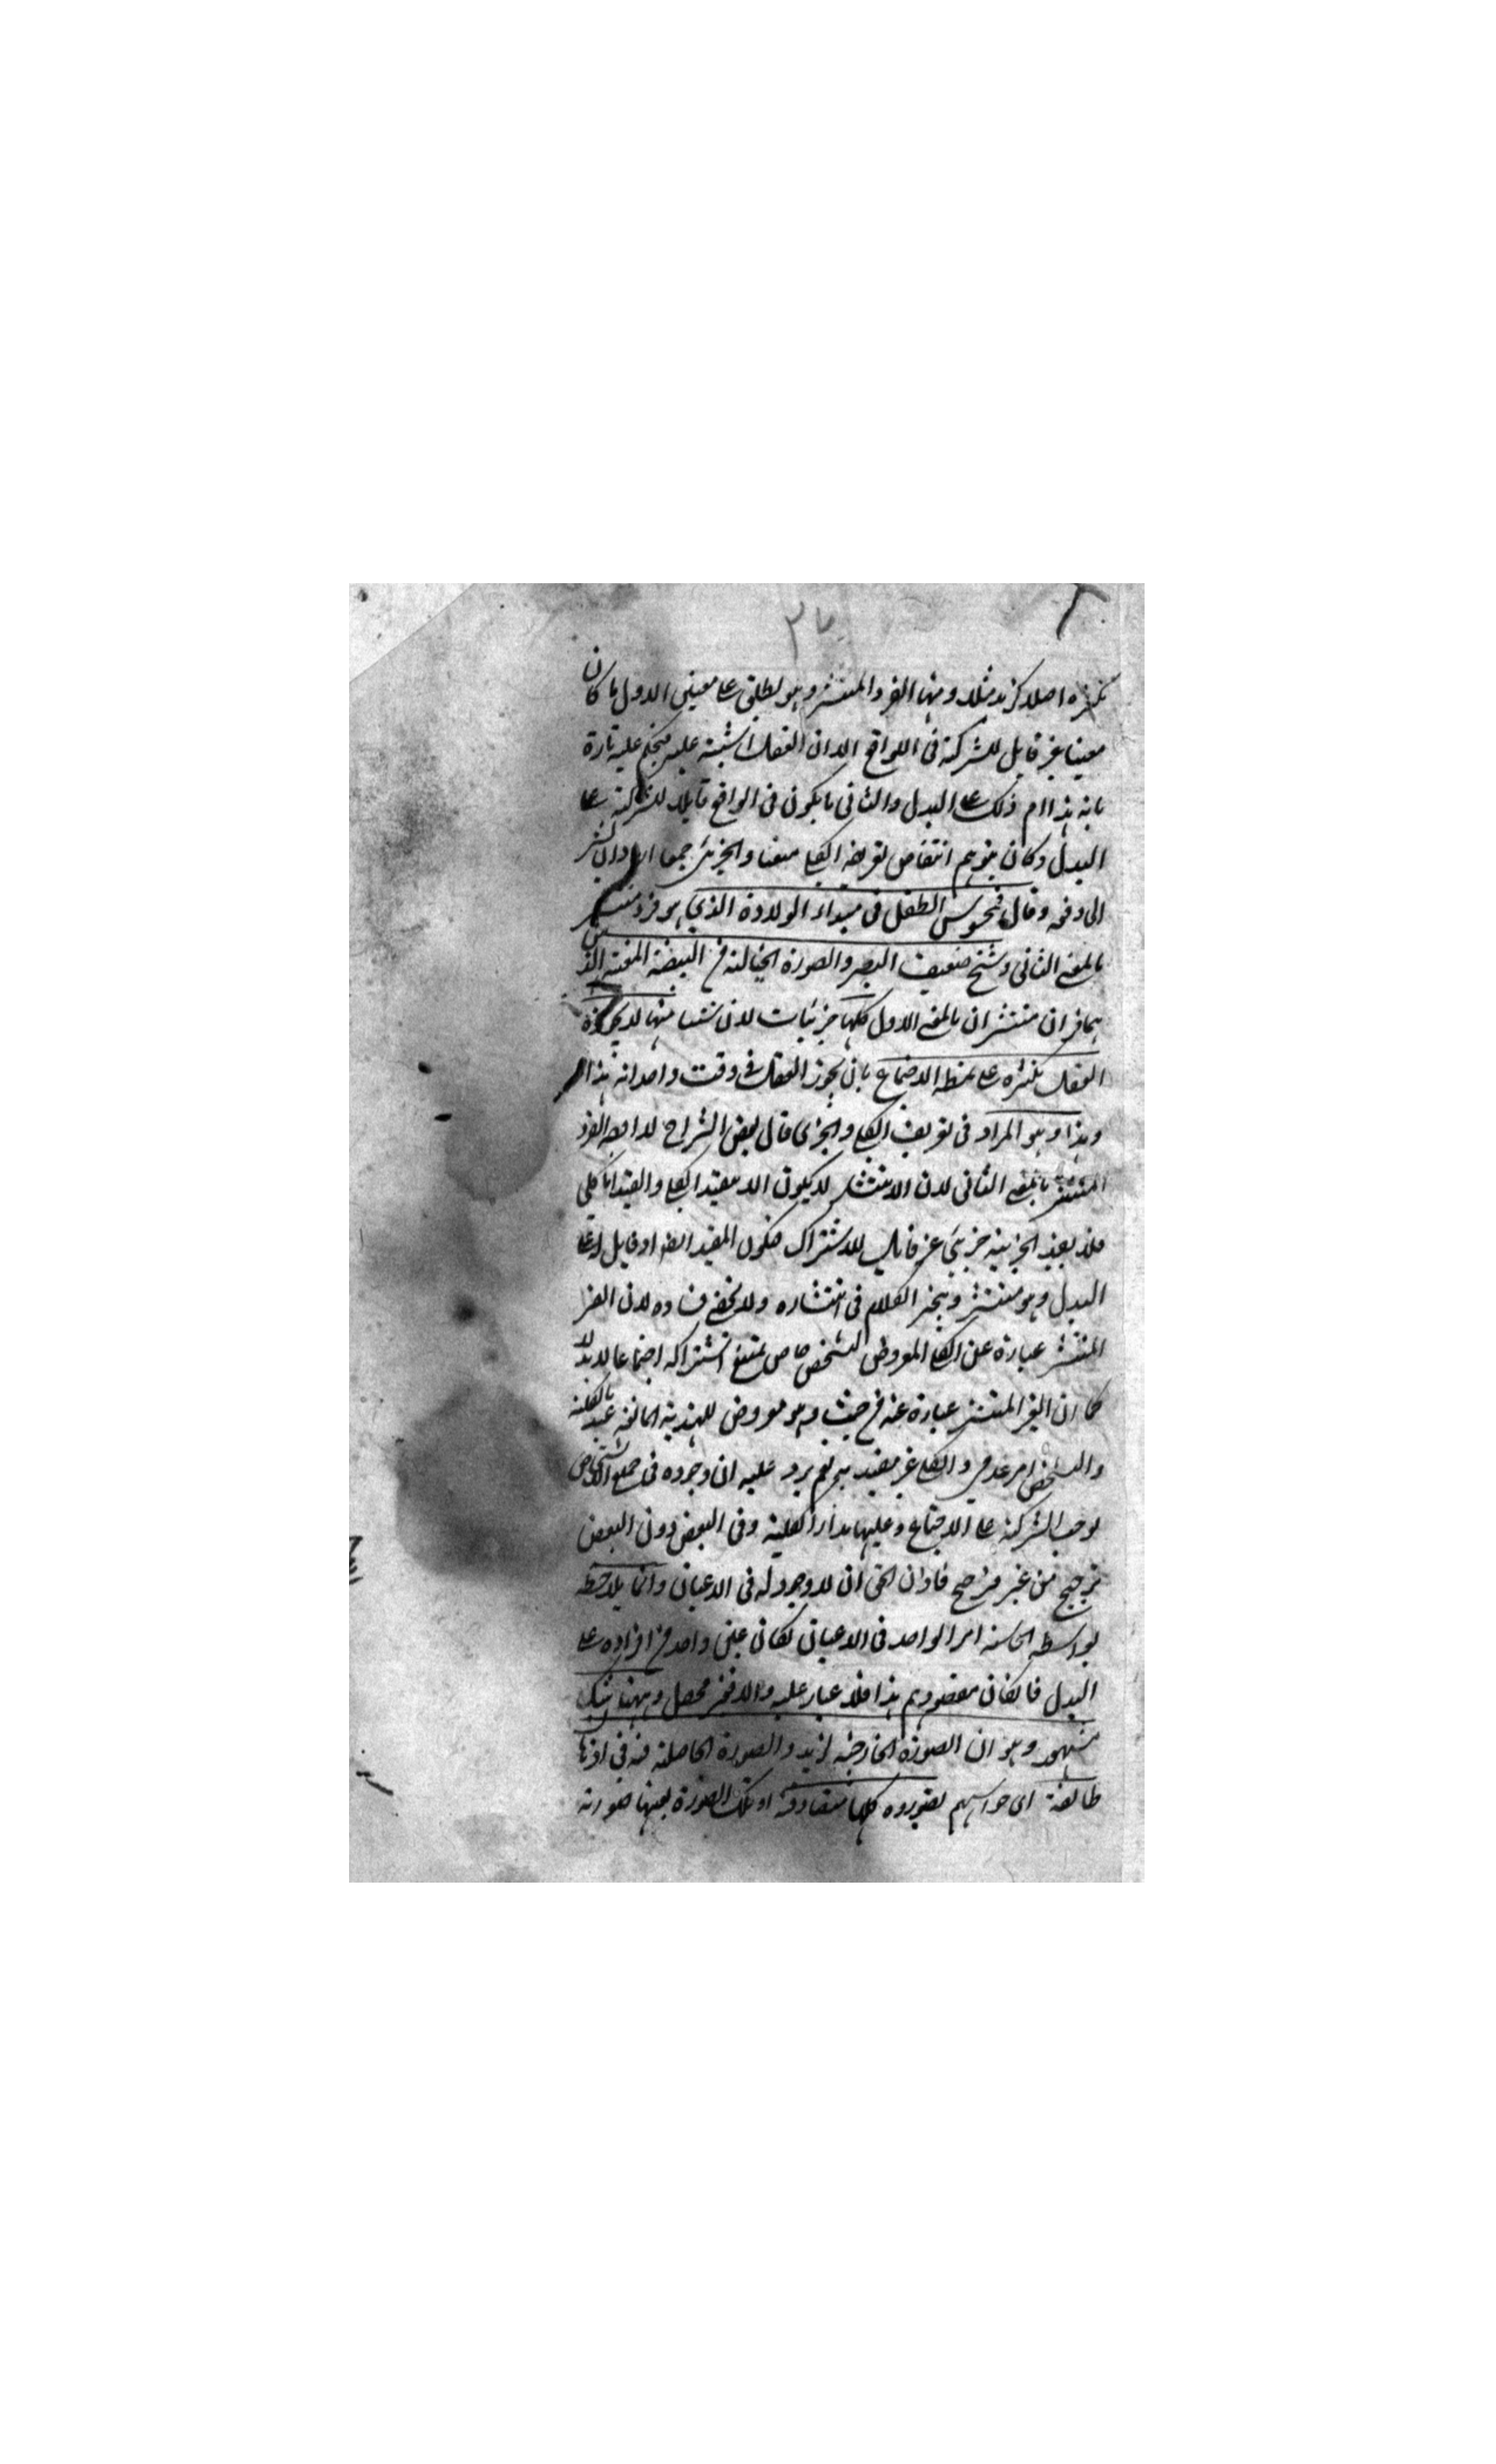 ٢٧
تكثره اصلا كزيد مثلا ومنها الفرد المنتشر وهو يطلق على معنيين الاول ما كان
معينا غير قابل للشركة فى الواقع الا ان العقل اشتبه عليه فيحكم عليه تارة
بانه هذا ام ذلك على البدل والثانى ما يكون فى الواقع قابلا للشركة على
البدل وكان يتوهم انتقاض تعريف الكلى منعا والجزئى جمعا اراد ان يشير
الى دفعه وقال فمحسوس الطفل فى مبداء الولادة الذى هو فرد منتشر
بالمعنى الثانى وشيخ ضعيف البصر والصورة الخيالية من البيضة المعينة الذين
هما فردان منتشران بالمعنى الاول كلها جزئيات لان شيئا منها لا يجوزه
العقل تكثره على نمط الاجتماع بان يجوز العقل فى وقت واحد انه هذا
وهذا وهو المراد فى تعريف الكلى والجزئى قال بعض الشراح لا الفرد
المنتشر بالمعنى الثانى لان الانتشار لا يكون الا مقيد الكلى والقيد اما كلى
فلا يفيد الجزئية جزئى غير قابل للاشتراك فيكون المقيد ايضا او قابل له على
البدل وهو منتشر وينجر الكلام فى انتشاره ولا يخفى فساده لان الفرد
المنتشر عبارة عن الكلى المعروض لتشخص خاص يمتنع اشتراكه اجتماعا لا بدلا
كما ان الغير المنتشر عبارة عنه من حيث هو معروض للهذية المانعة عنه بالكلية
والتشخص امر عدمى والكلى غير مقيد به نعم يرد عليه ان وجوده فى جميع الاشخاص
يوجب الشركة على الاجتماع وعليها مدار الكلية وفى البعض دون البعض
ترجيح من غير مرجح فاذن الحق ان لا وجود له فى الاعيان وانما يلاحظ
بواسطة الحاسة امرا لواحد فى الاعيان لكان عين واحد من افراده على
البدل فان كان مقصودهم هذا فلا غبار عليه والا فغير محصل وههنا شك
مشهور وهو ان الصورة الخارجية لزيد والصورة الحاصلة منه فى اذهان
طائفة اى حواسهم تصوروه كلها متصادقة اذ تلك الصورة بعينها صورته